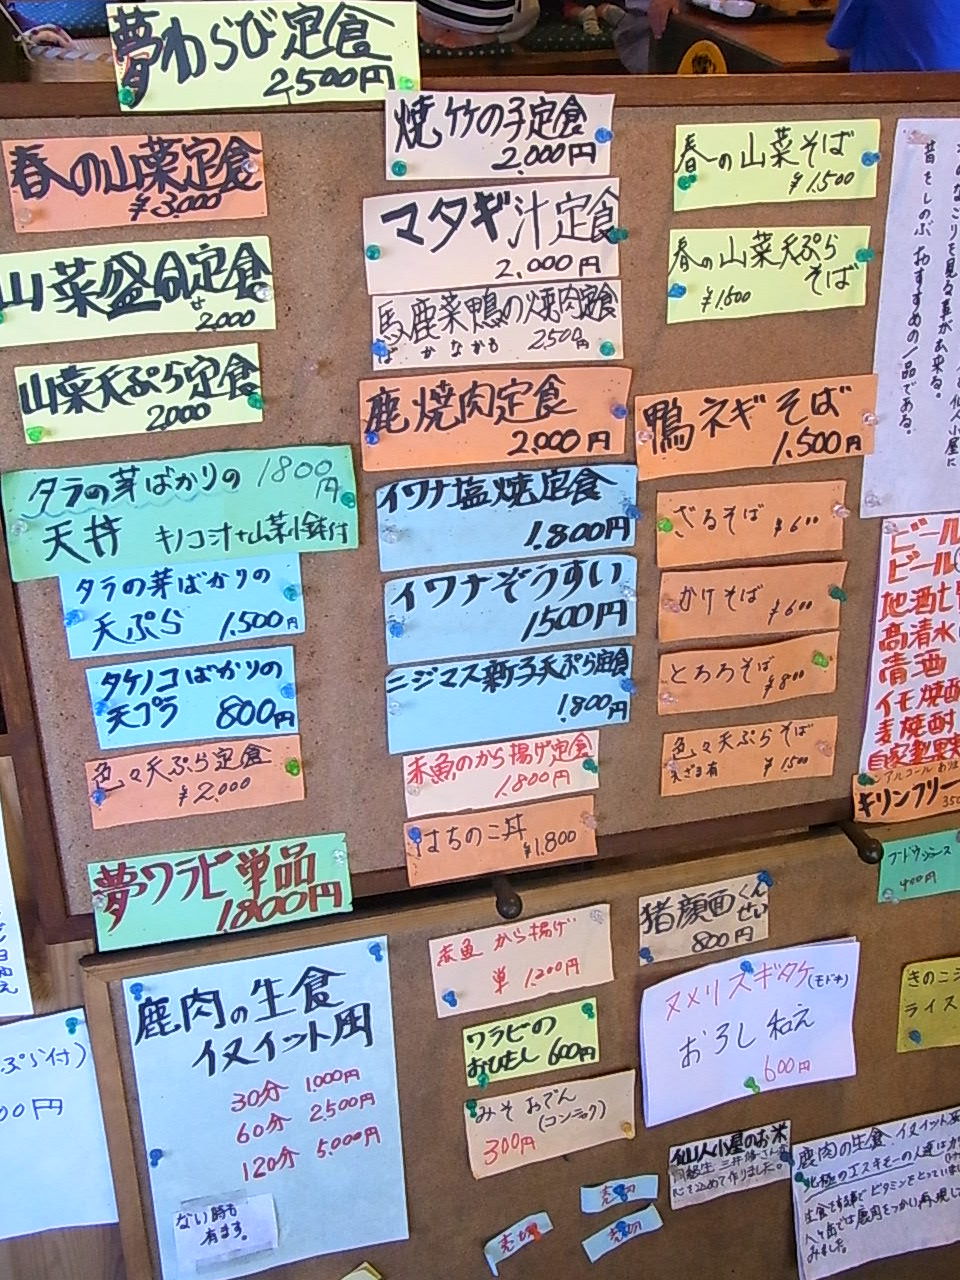 夢わらび定食
2500円
春の山菜定食
¥3,000
山菜盛合せ定食
2,000
山菜天ぷら定食
2,000
タラの芽ばかりの 1800円
天丼 キノコ汁+山菜小鉢付
タラの芽ばかりの
天ぷら 1,500円
タケノコばかりの
天プラ 800円
色々天ぷら定食
¥2,000
夢ワラビ単品
1,800円
焼竹の子定食
2,000円
マタギ汁定食
2,000円
馬鹿菜鴨の焼肉定食
ばかなかも 2500円
鹿焼肉定食
2,000円
イワナ塩焼定食
1,800円
イワナぞうすい
1500円
ニジマス新子天ぷら定食
1,800円
赤魚のから揚げ定食
1,800円
はちのこ丼
¥1,800
春の山菜そば
¥1,500
春の山菜天ぷら
そば
¥1,500
鴨ネギそば
1,500円
ざるそば ¥600
かけそば ¥600
とろろそば
¥800
色々天ぷらそば
¥1,500
昔をしのぶおすすめの一品である。
ビール
ビール
地酒
高清水
清酒
イモ焼酎
麦焼酎
キリンフリー
350
400円
鹿肉の生食
イヌイット風
30分 1,000円
60分 2,500円
120分 5,000円
ない時も
有ます。
赤魚から揚げ
単 1,200円
ワラビの
おひたし 600円
みそおでん
(コンニャク)
300円
猪顔面くんせい
800円
ヌメリスギタケ(モドキ)
おろし和え
600円
きのこ
ライス
仙人小屋のお米
心を込めて作りました。
売切
売切
売切
鹿肉の生食
北極のエスキモーの人達は
みました。
ぷら付)
00円